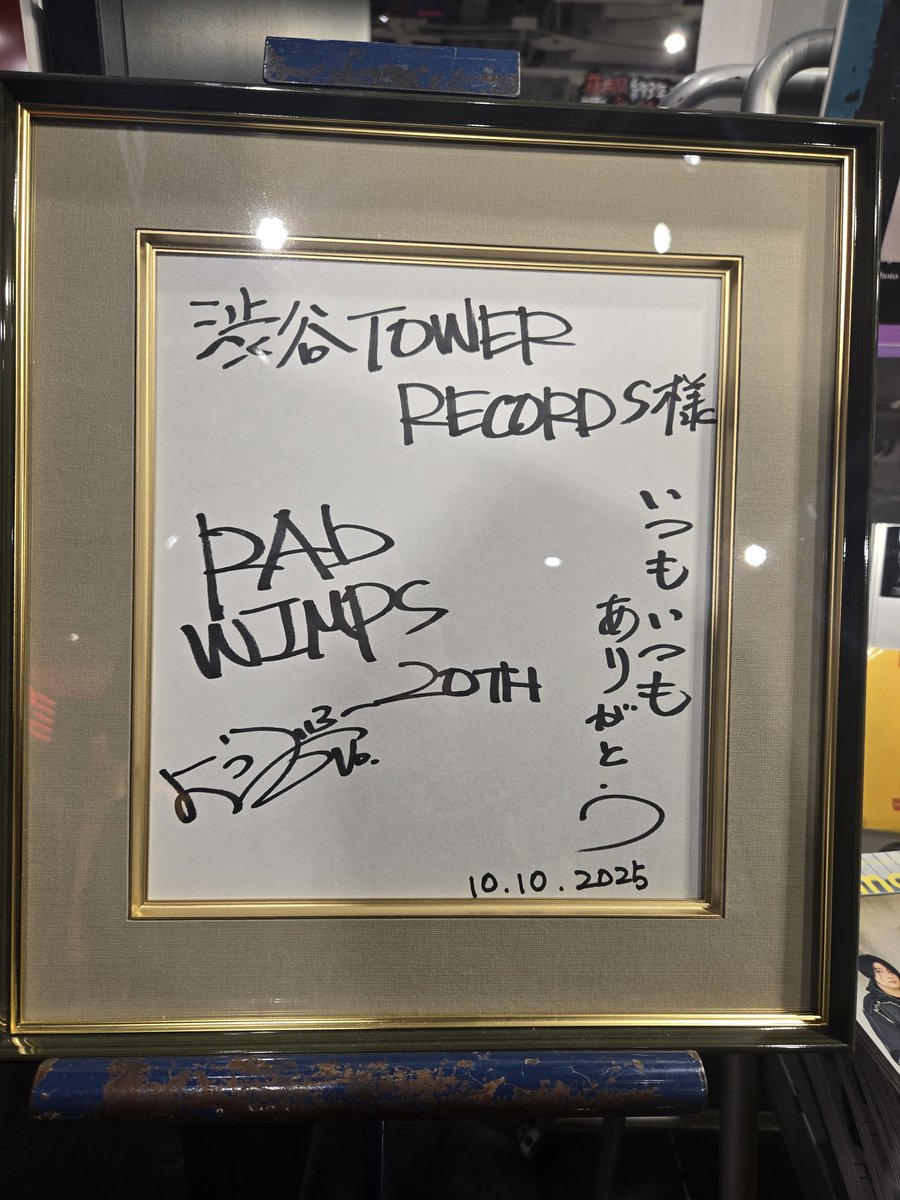 渋谷TOWER
RECORDS様
いつもいつも
ありがとう
RAD
WIMPS
20TH
Vo.
10.10.2025